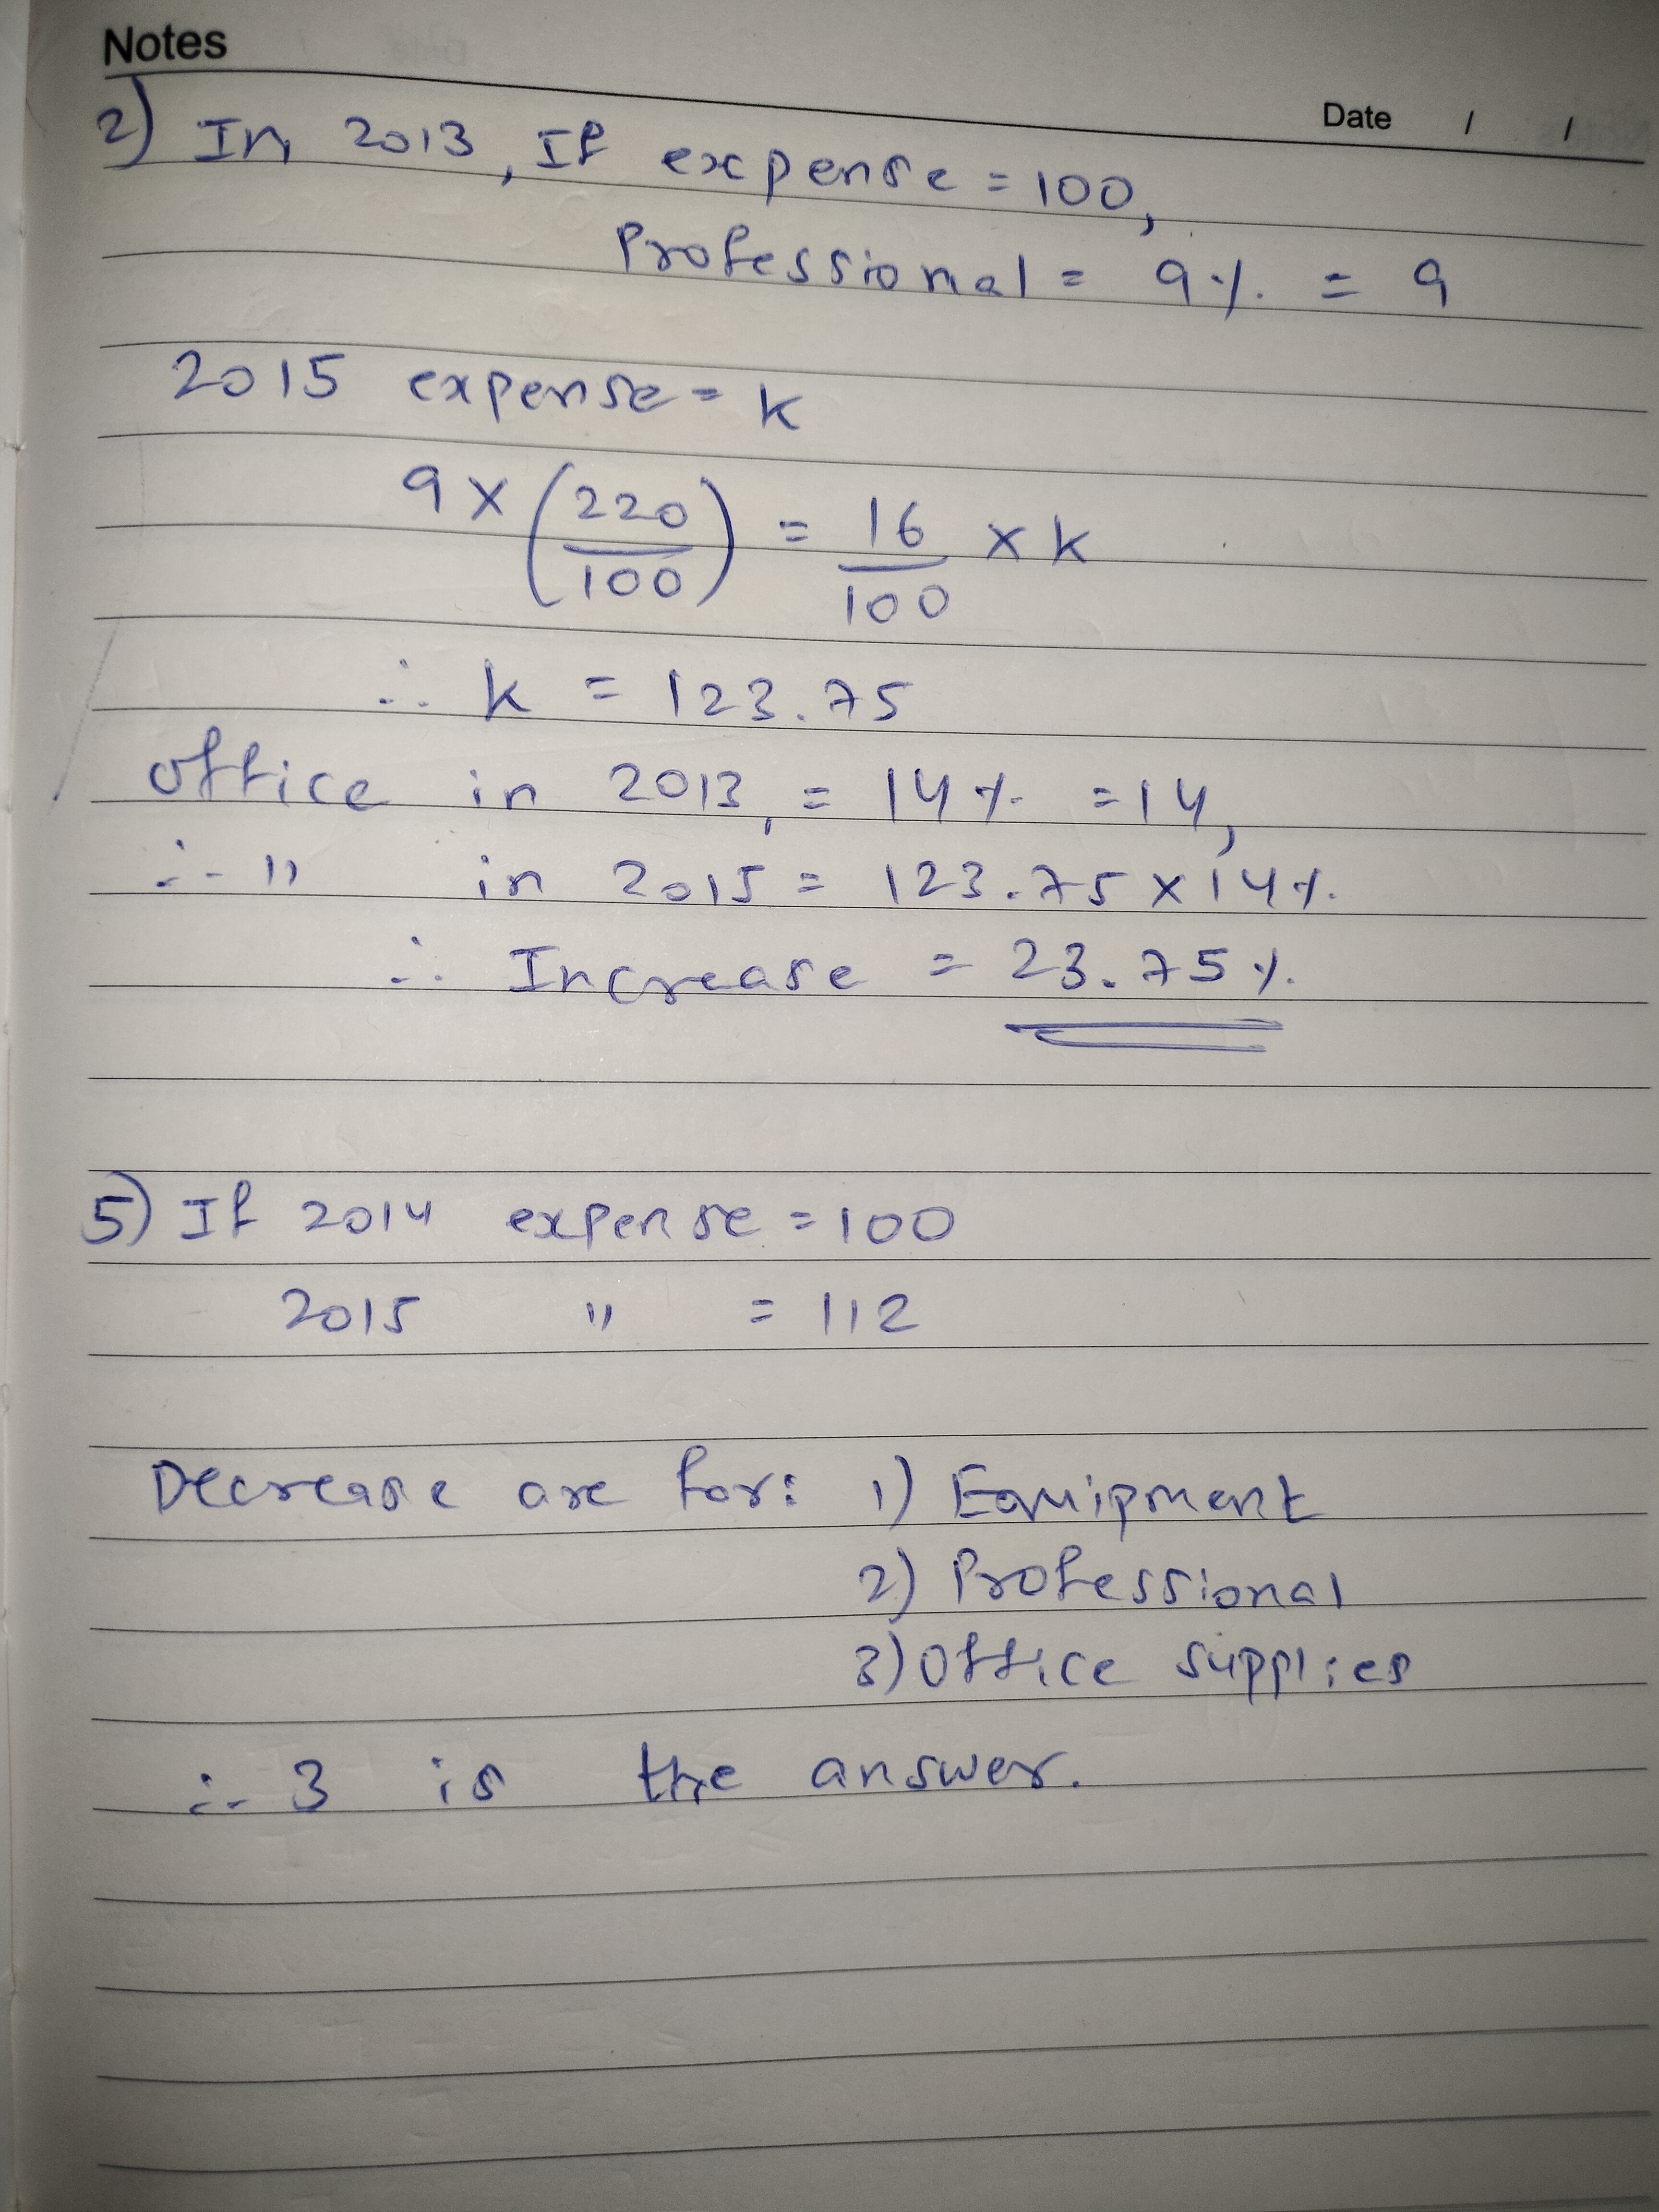 Notes
Date / /
2) In 2013, If expense = 100,
Professional = 9% = 9
2015 expense = k
9 × (220/100) = 16/100 × k
∴ k = 123.75
office in 2013, = 14% = 14,
∴ " in 2015 = 123.75 × 14%
∴ Increase = 23.75%
5) If 2014 expense = 100
2015 " = 112
Decrease are for: 1) Equipment
2) Professional
3) Office supplies
∴ 3 is the answer.